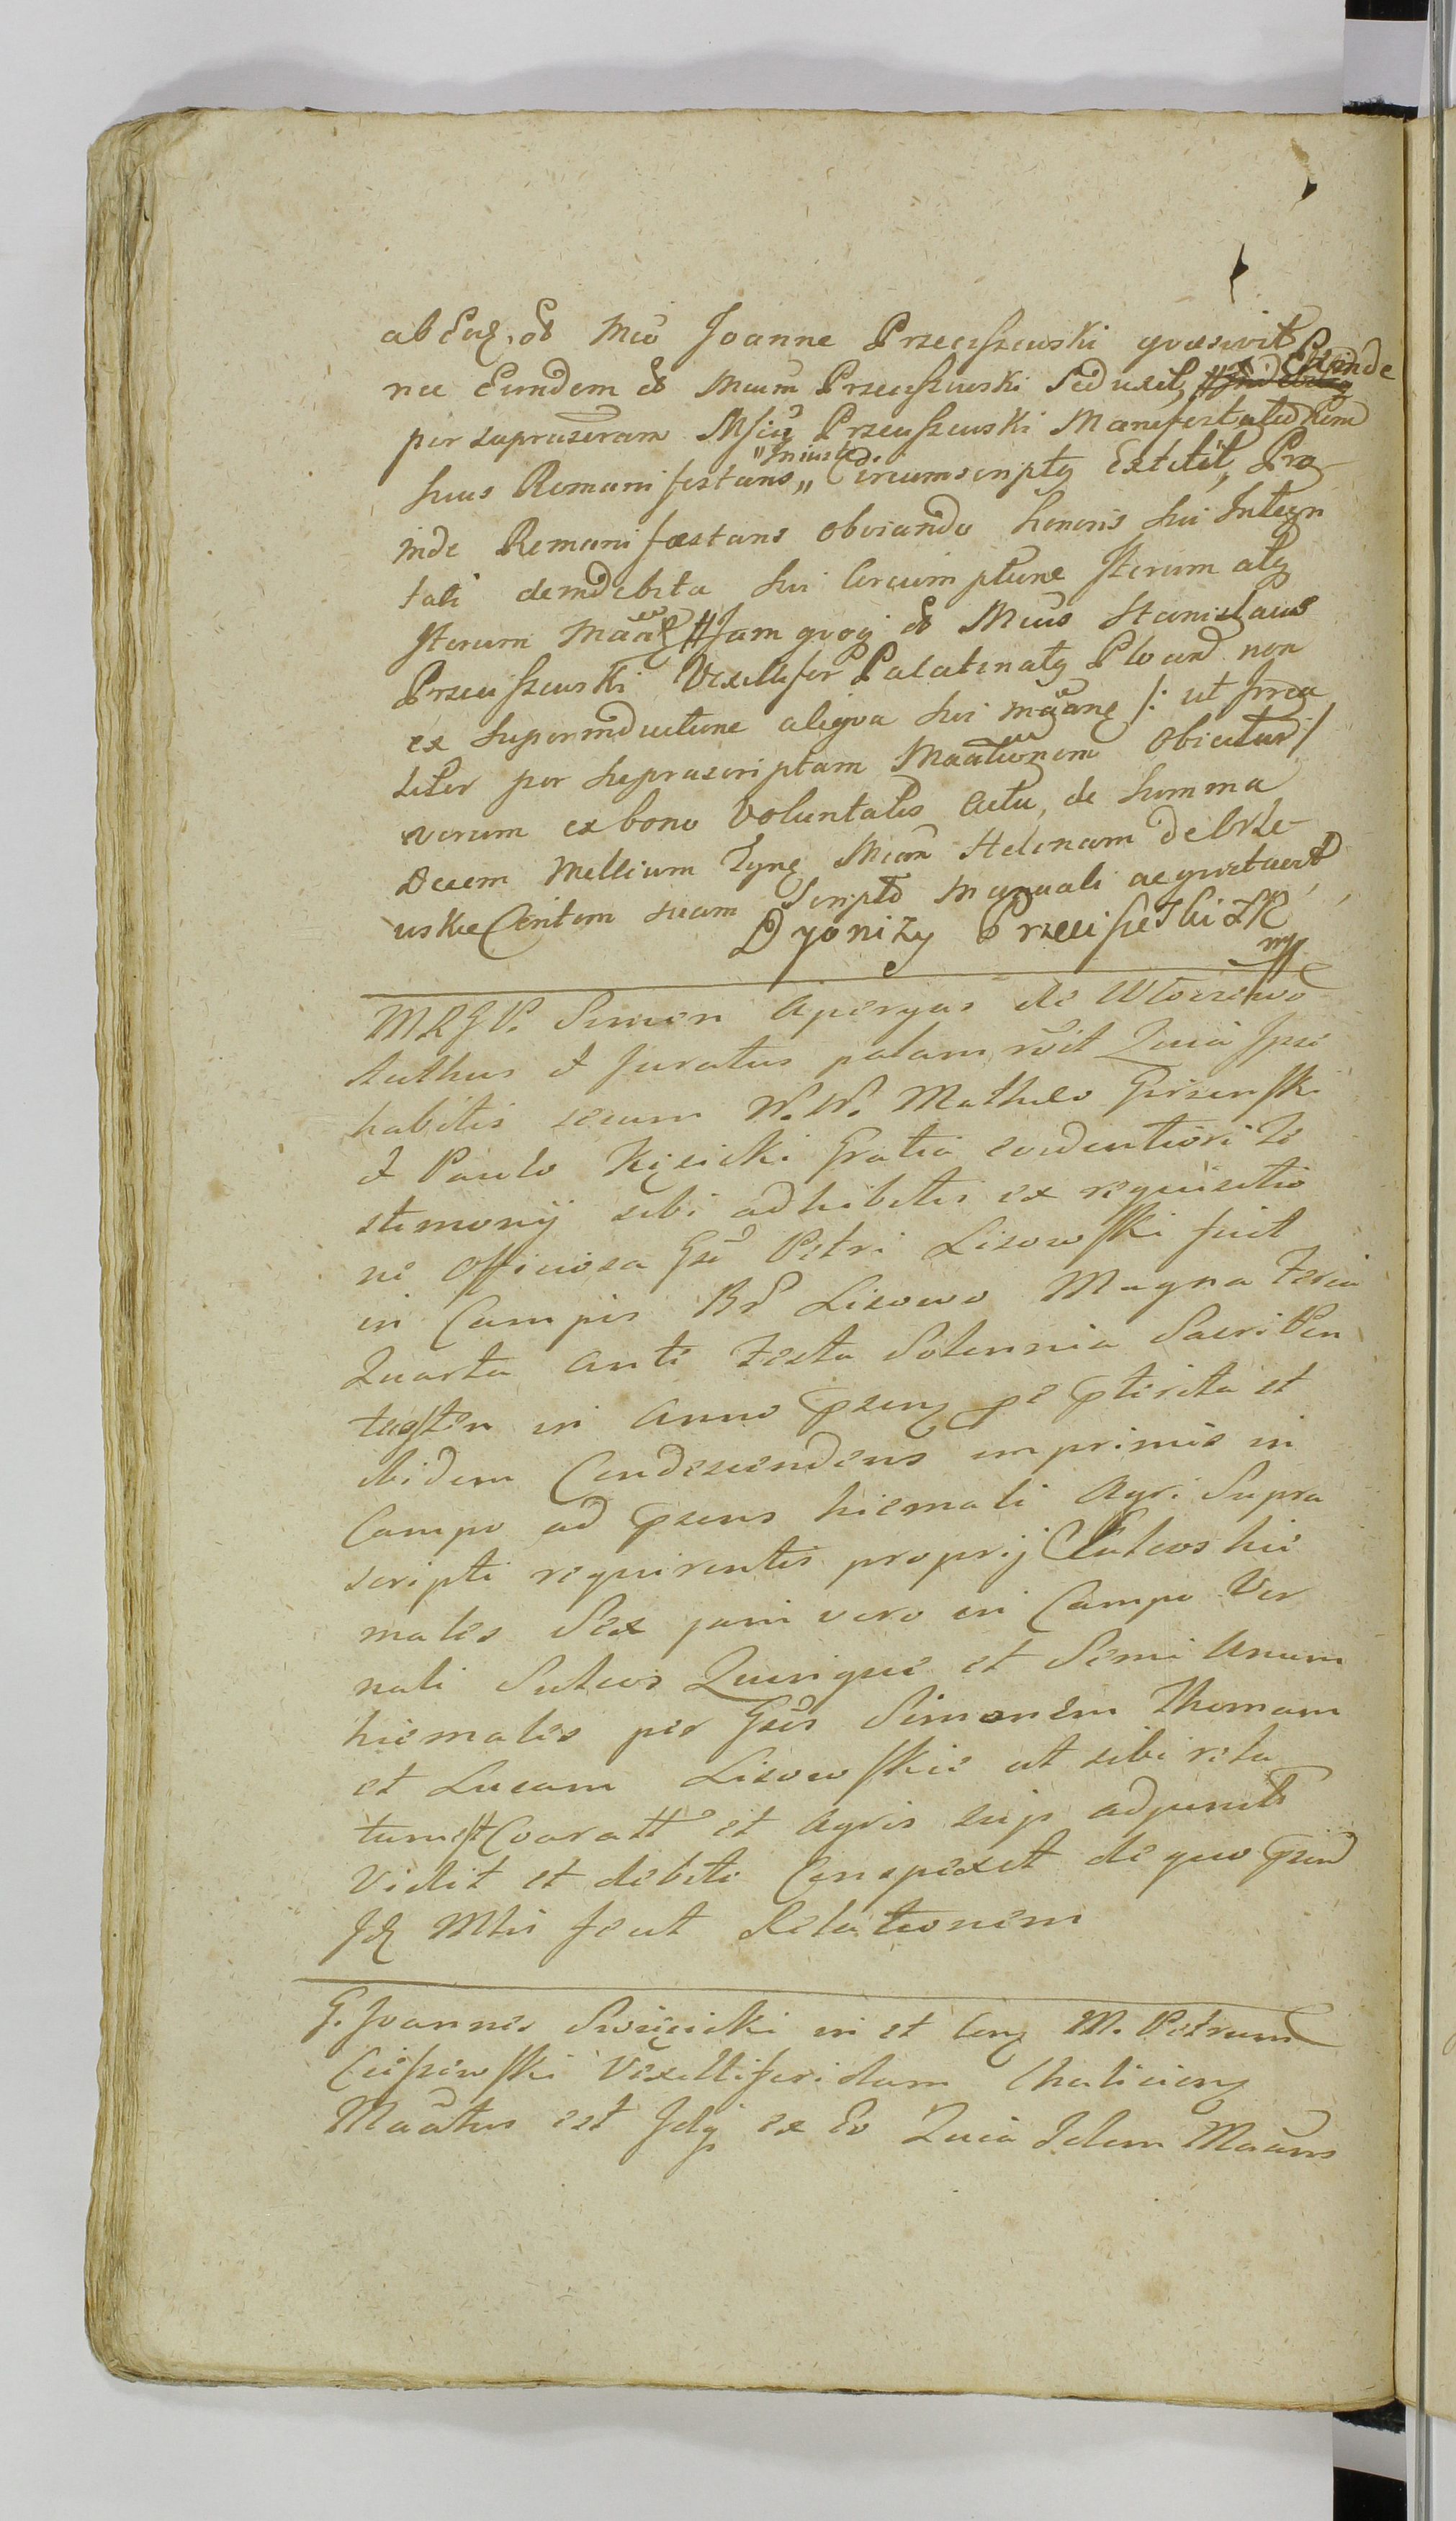 ab Eod. & Mco Joanne Przeciszewski quaesivit
nec Eundem & Mcum Przeciszewski Seduxit, Exinde
per suprascram Mfici Przeciszewski Manifestatio
suus Remanifestans „Iniuste„ Circumscriptq Extitit, Pro
inde Remanifestans obviando honoris sui Integri
tati de indebita sui Circumptione Iterum atq
Iterum Jam quoq & Mcus Stanislaus
Przeciszewski Vexillifer Palatinatq Plocen non
ex superinductione aliqua sui /: ut
liter per suprascriptam Maationem Obicitur :/
verum ex bono Voluntatis actu, de Summa
Decem Millium Mcam Helenam de Brze
uskie Amitam suam Scripto Manuali acquietavit
Dyonizy Przeciszewski ZR
mp
M R G P. Simon Apergus de Wloczewo
Authus & Juratus palam rcit Quia Ipse
habitis secum N. N. Matheo Girzynski
& Paulo Kęsicki Gratia evidentiori Te
stimonij sibi adhibitis ex requisitio
ne Officiosa Gsi Petri Lisowski fuit
in Campis Lisowo Magna Feria
Quarta Ante Festa Solennia Sacri Pen
tecosten in Anno praesenq pterita et
ibidem Condescendens imprimis in
Campo ad praesens hiemali Agri Supra
scripti requirentis proprij Sulcos hie
males Sex jam vero in Campo Ver
nali Sulcos Quinque et Semi Unum
hiemales per Gsos Simonem Thomam
et Lucam Lisowskie ut sibi rela
tum est Coaratt et Agris suis adjunctt
Vidit et debite Conspexit de quo praesen
Idq Mtris fecit Relationem
G. Joannes Swięcicki in et Conq M. Petrum
Cieszewski Vexilliferidam Chelicienq
Maatus est Idq ex Eo Quia Idem Maans